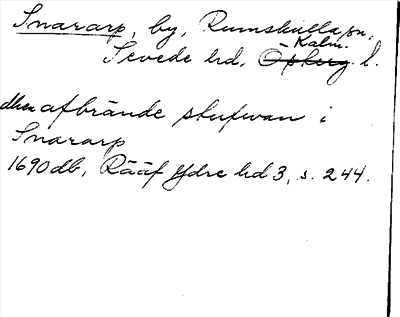 Snararp, by, Rumskulla sn,
Kalm.
Sevede hd, Öpberg l.
dhen afbrände stufwan i
Snararp
1690 db, Rääf Ydre hd 3, s. 244.